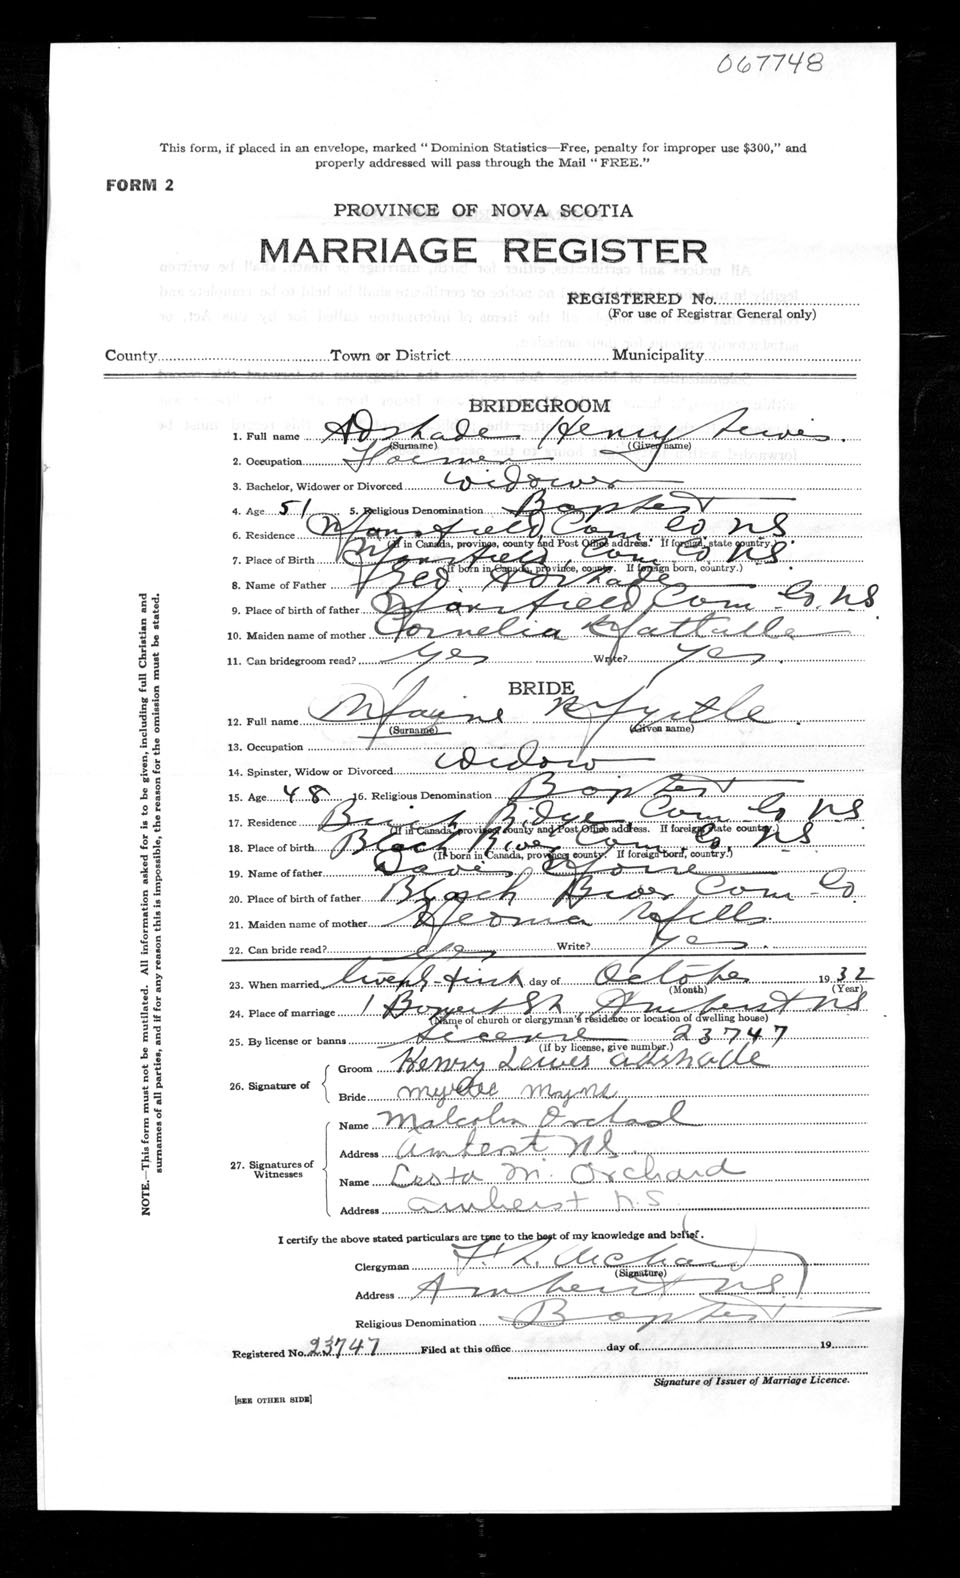 067748
This form, if placed in an envelope, marked " Dominion Statistics—Free, penalty for improper use $300," and
properly addressed will pass through the Mail " FREE."
FORM 2
PROVINCE OF NOVA SCOTIA
MARRIAGE REGISTER
REGISTERED No.
(For use of Registrar General only)
County Town or District Municipality
BRIDEGROOM
1. Full name Adshade Henry Lewis
(Surname) (Given name)
2. Occupation
3. Bachelor, Widower or Divorced widower
4. Age 51 5. Religious Denomination Baptist
6. Residence Mansfield, Cum Co NS
(If in Canada, province, county and Post Office address. If foreign, state country.)
7. Place of Birth Mansfield, Cum Co NS.
(If born in Canada, province, county. If foreign born, country.)
8. Name of Father Adshade
9. Place of birth of father Mansfield Cum Co. NS
10. Maiden name of mother Cornelia
11. Can bridegroom read? yes Write? yes.
BRIDE
12. Full name Myrtle
(Surname) (Given name)
13. Occupation
14. Spinster, Widow or Divorced widow
15. Age 48 16. Religious Denomination Baptist
17. Residence Ridge Cum Co NS
(If in Canada, province, county and Post Office address. If foreign, state country.)
18. Place of birth Black River Cum Co, NS.
(If born in Canada, province, county. If foreign born, country.)
19. Name of father
20. Place of birth of father Black River Cum Co.
21. Maiden name of mother Mills
22. Can bride read? yes Write? yes.
23. When married twenty-first day of October 1932
(Month) (Year)
24. Place of marriage 1 St, Amherst NS
(Name of church or clergyman's residence or location of dwelling house)
25. By license or banns License 23747
(If by license, give number.)
26. Signature of
Groom Henry Lewis adshade
Bride Myrtle
27. Signatures of
Witnesses
Name Malcolm Orchard
Address Amherst NS.
Name M. Orchard
Address Amherst N.S
I certify the above stated particulars are true to the best of my knowledge and belief.
Clergyman Orchard
(Signature)
Address Amherst NS.
Religious Denomination Baptist
Registered No. 23747 Filed at this office day of 19
Signature of Issuer of Marriage Licence.
[SEE OTHER SIDE]
NOTE.—This form must not be mutilated. All information asked for is to be given, including full Christian and
surnames of all parties, and if for any reason this is impossible, the reason for the omission must be stated.